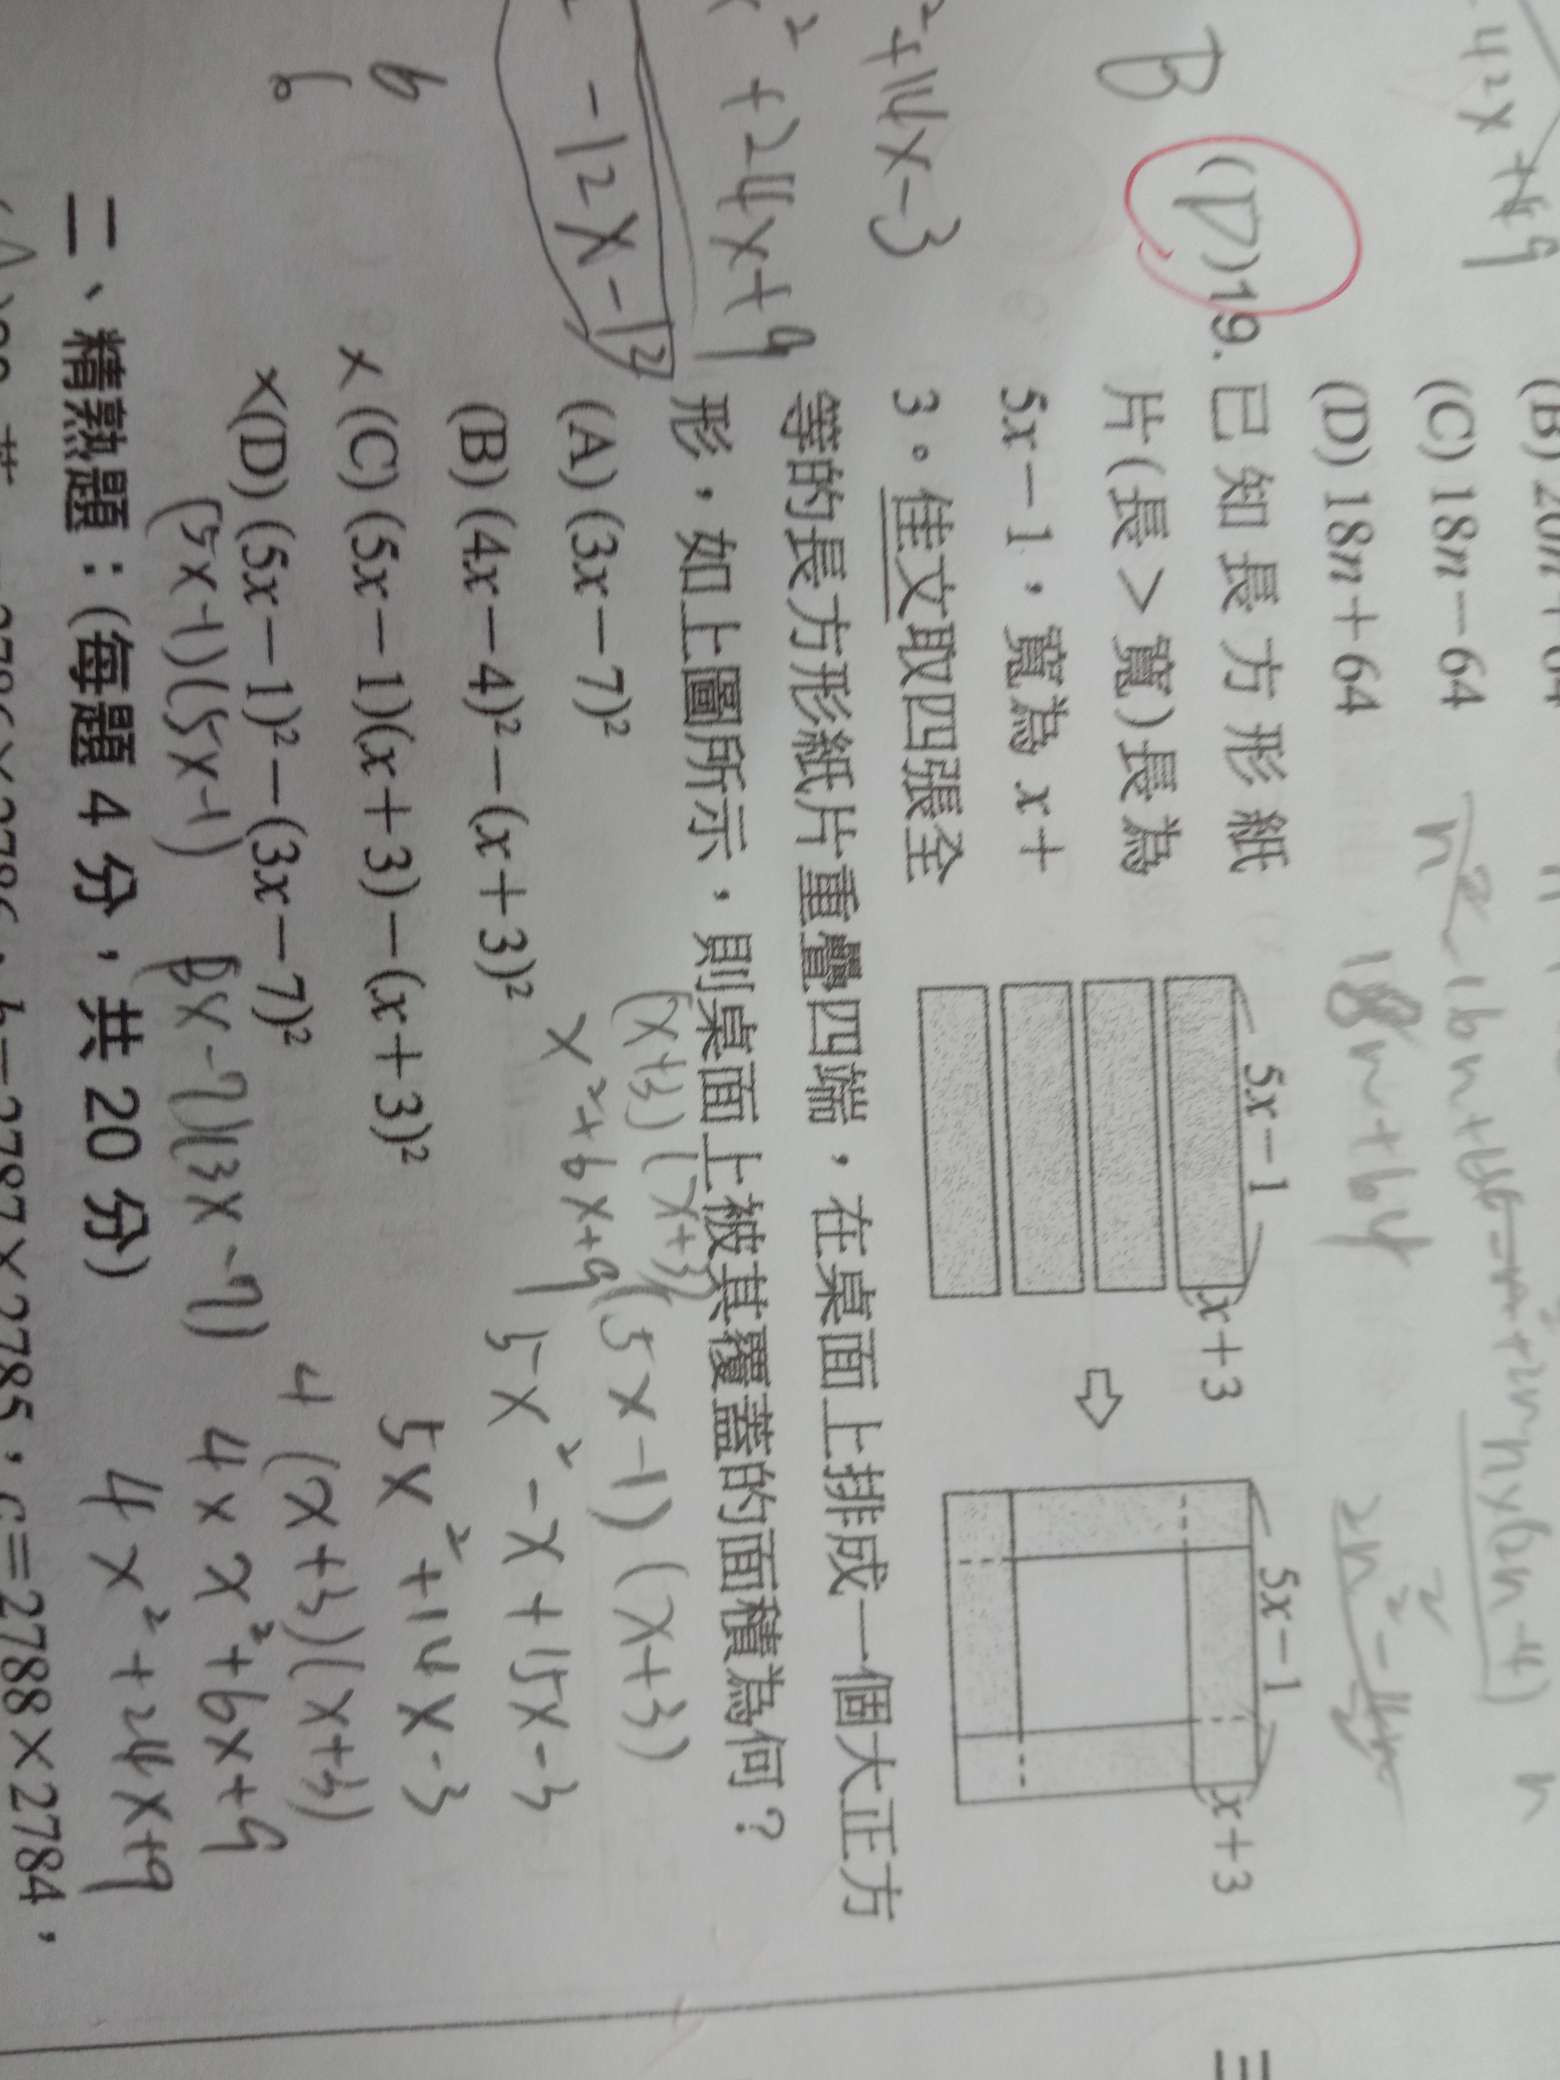 42x + 49
(C) 18n－64
(D) 18n＋64
B (D)19. 已知長方形紙
片(長＞寬)長為
5x－1，寬為 x＋
3。佳文取四張全
等的長方形紙片重疊四端，在桌面上排成一個大正方
形，如上圖所示，則桌面上被其覆蓋的面積為何？
5x－1
x＋3
5x－1
x＋3
(A) (3x－7)²
(B) (4x－4)²－(x＋3)²
x (C) (5x－1)(x＋3)－(x＋3)²
x (D) (5x－1)²－(3x－7)²
18n+64
²+14x-3
² + 24x+9
(x+3)(x+3)
x²+6x+9
(5x-1)(x+3)
5x²-x+15x-3
5x²+14x-3
4(x+3)(x+3)
4x x²+6x+9
4x²+24x+9
(5x-1)(5x-1)
(3x-7)(3x-7)
二、精熟題：(每題 4 分，共 20 分)
三